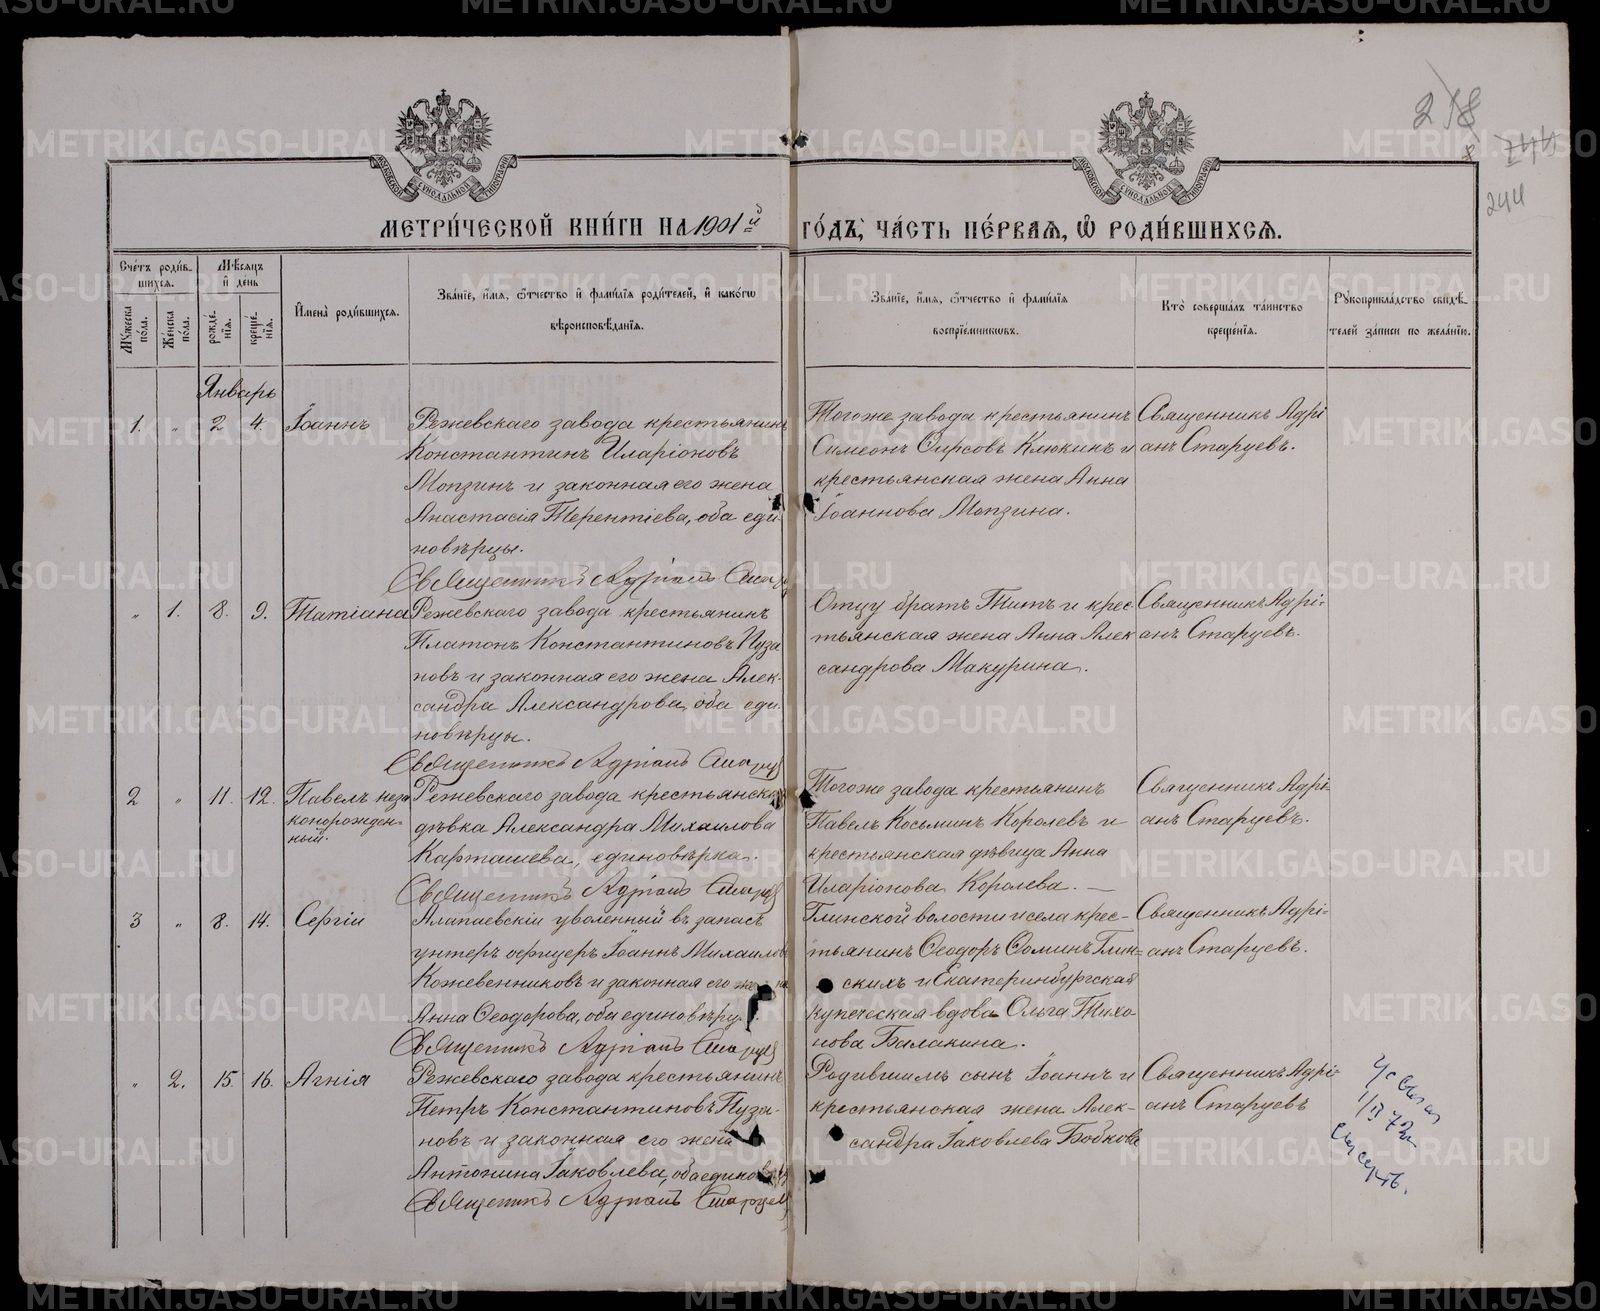 218
244
244
МОСКОВСКОЙ СѴНОДАЛЬНОЙ ТИПОГРАФІИ
МОСКОВСКОЙ СѴНОДАЛЬНОЙ ТИПОГРАФІИ
МЕТРИ́ЧЕСКОЙ КНИ́ГИ НА 1901й ГО́ДЪ, ЧА́СТЬ ПЕ́РВАЯ, Ѡ РОДИ́ВШИХСЯ.
Сче́тъ роди́в-
шихся.
Мꙋ́жеска по́ла.
Же́нска по́ла.
Мѣ́сяцъ
и҆ де́нь
рожде́-
нїя.
креще́-
нїя.
И҆мена̀ роди́вшихся.
Зва́нїе, и҆́мя, ѻ҆́тчество и҆ фами́лїя роди́телей, и҆ како́гѡ
вѣроисповѣ́данїя.
Зва́нїе, и҆́мя, ѻ҆́тчество и҆ фами́лїя
воспрїе́мникѡвъ.
Кто̀ соверша́лъ та́инство
креще́нїя.
Рꙋкоприкла́дство свидѣ́-
телей за́писи по жела́нїю.
Январь
1. „ 2 4. Іоаннъ
Режевскаго завода крестьянинъ
Константинъ Иларіоновъ
Мопзинъ и законная его жена
Анастасія Терентіева, оба еди-
новѣрцы.
Священникъ Адріанъ Стар
Тогоже завода крестьянинъ
Симеонъ Ѳирсовъ Клюкинъ и
крестьянская жена Анна
Іоаннова Мопзина.
Священникъ Адрі
анъ Старцевъ.
„ 1. 8. 9. Татіана
Режевскаго завода крестьянинъ
Платонъ Константиновъ Пуза
новъ и законная его жена Алек-
сандра Александрова, оба еди-
новѣрцы.
Священникъ Адріанъ Старцев
Отцу братъ Титъ и крес-
тьянская жена Анна Алек
сандрова Макурина.
Священникъ Адрі-
анъ Старцевъ.
2 „ 11. 12. Павелъ неза
коннорожден-
ный.
Режевскаго завода крестьянская
дѣвка Александра Михаилова
Карташева, единовѣрка.
Священникъ Адріанъ Старцев
Тогоже завода крестьянинъ
Павелъ Косьминъ Королевъ и
крестьянская дѣвица Анна
Иларіонова Королева. —
Священникъ Адрі-
анъ Старцевъ.
3 „ 8. 14. Сергій
Алапаевскій уволенный въ запасъ
унтеръ офицеръ Іоаннъ Михаиловъ
Кожевенниковъ и законная его жена
Анна Ѳеодорова, оба единовѣрцы.
Священникъ Адріанъ Старцев
Глинской волости и села крес-
тьянинъ Ѳеодоръ Ѳоминъ Глин-
скихъ и Екатеринбургская
купеческая вдова Ольга Тихо
нова Балакина.
Священникъ Адрі-
анъ Старцевъ.
„ 2. 15. 16. Агнія
Режевскаго завода крестьянинъ
Петръ Константиновъ Пуза-
новъ и законная его жена
Антонина Іаковлева, оба единов
Священникъ Адріанъ Старцев
Родившимъ сынъ Іоаннъ и
крестьянская жена Алек-
сандра Іаковлева Бобкова
Священникъ Адрі-
анъ Старцевъ
METRIKI.GASO-URAL.RU